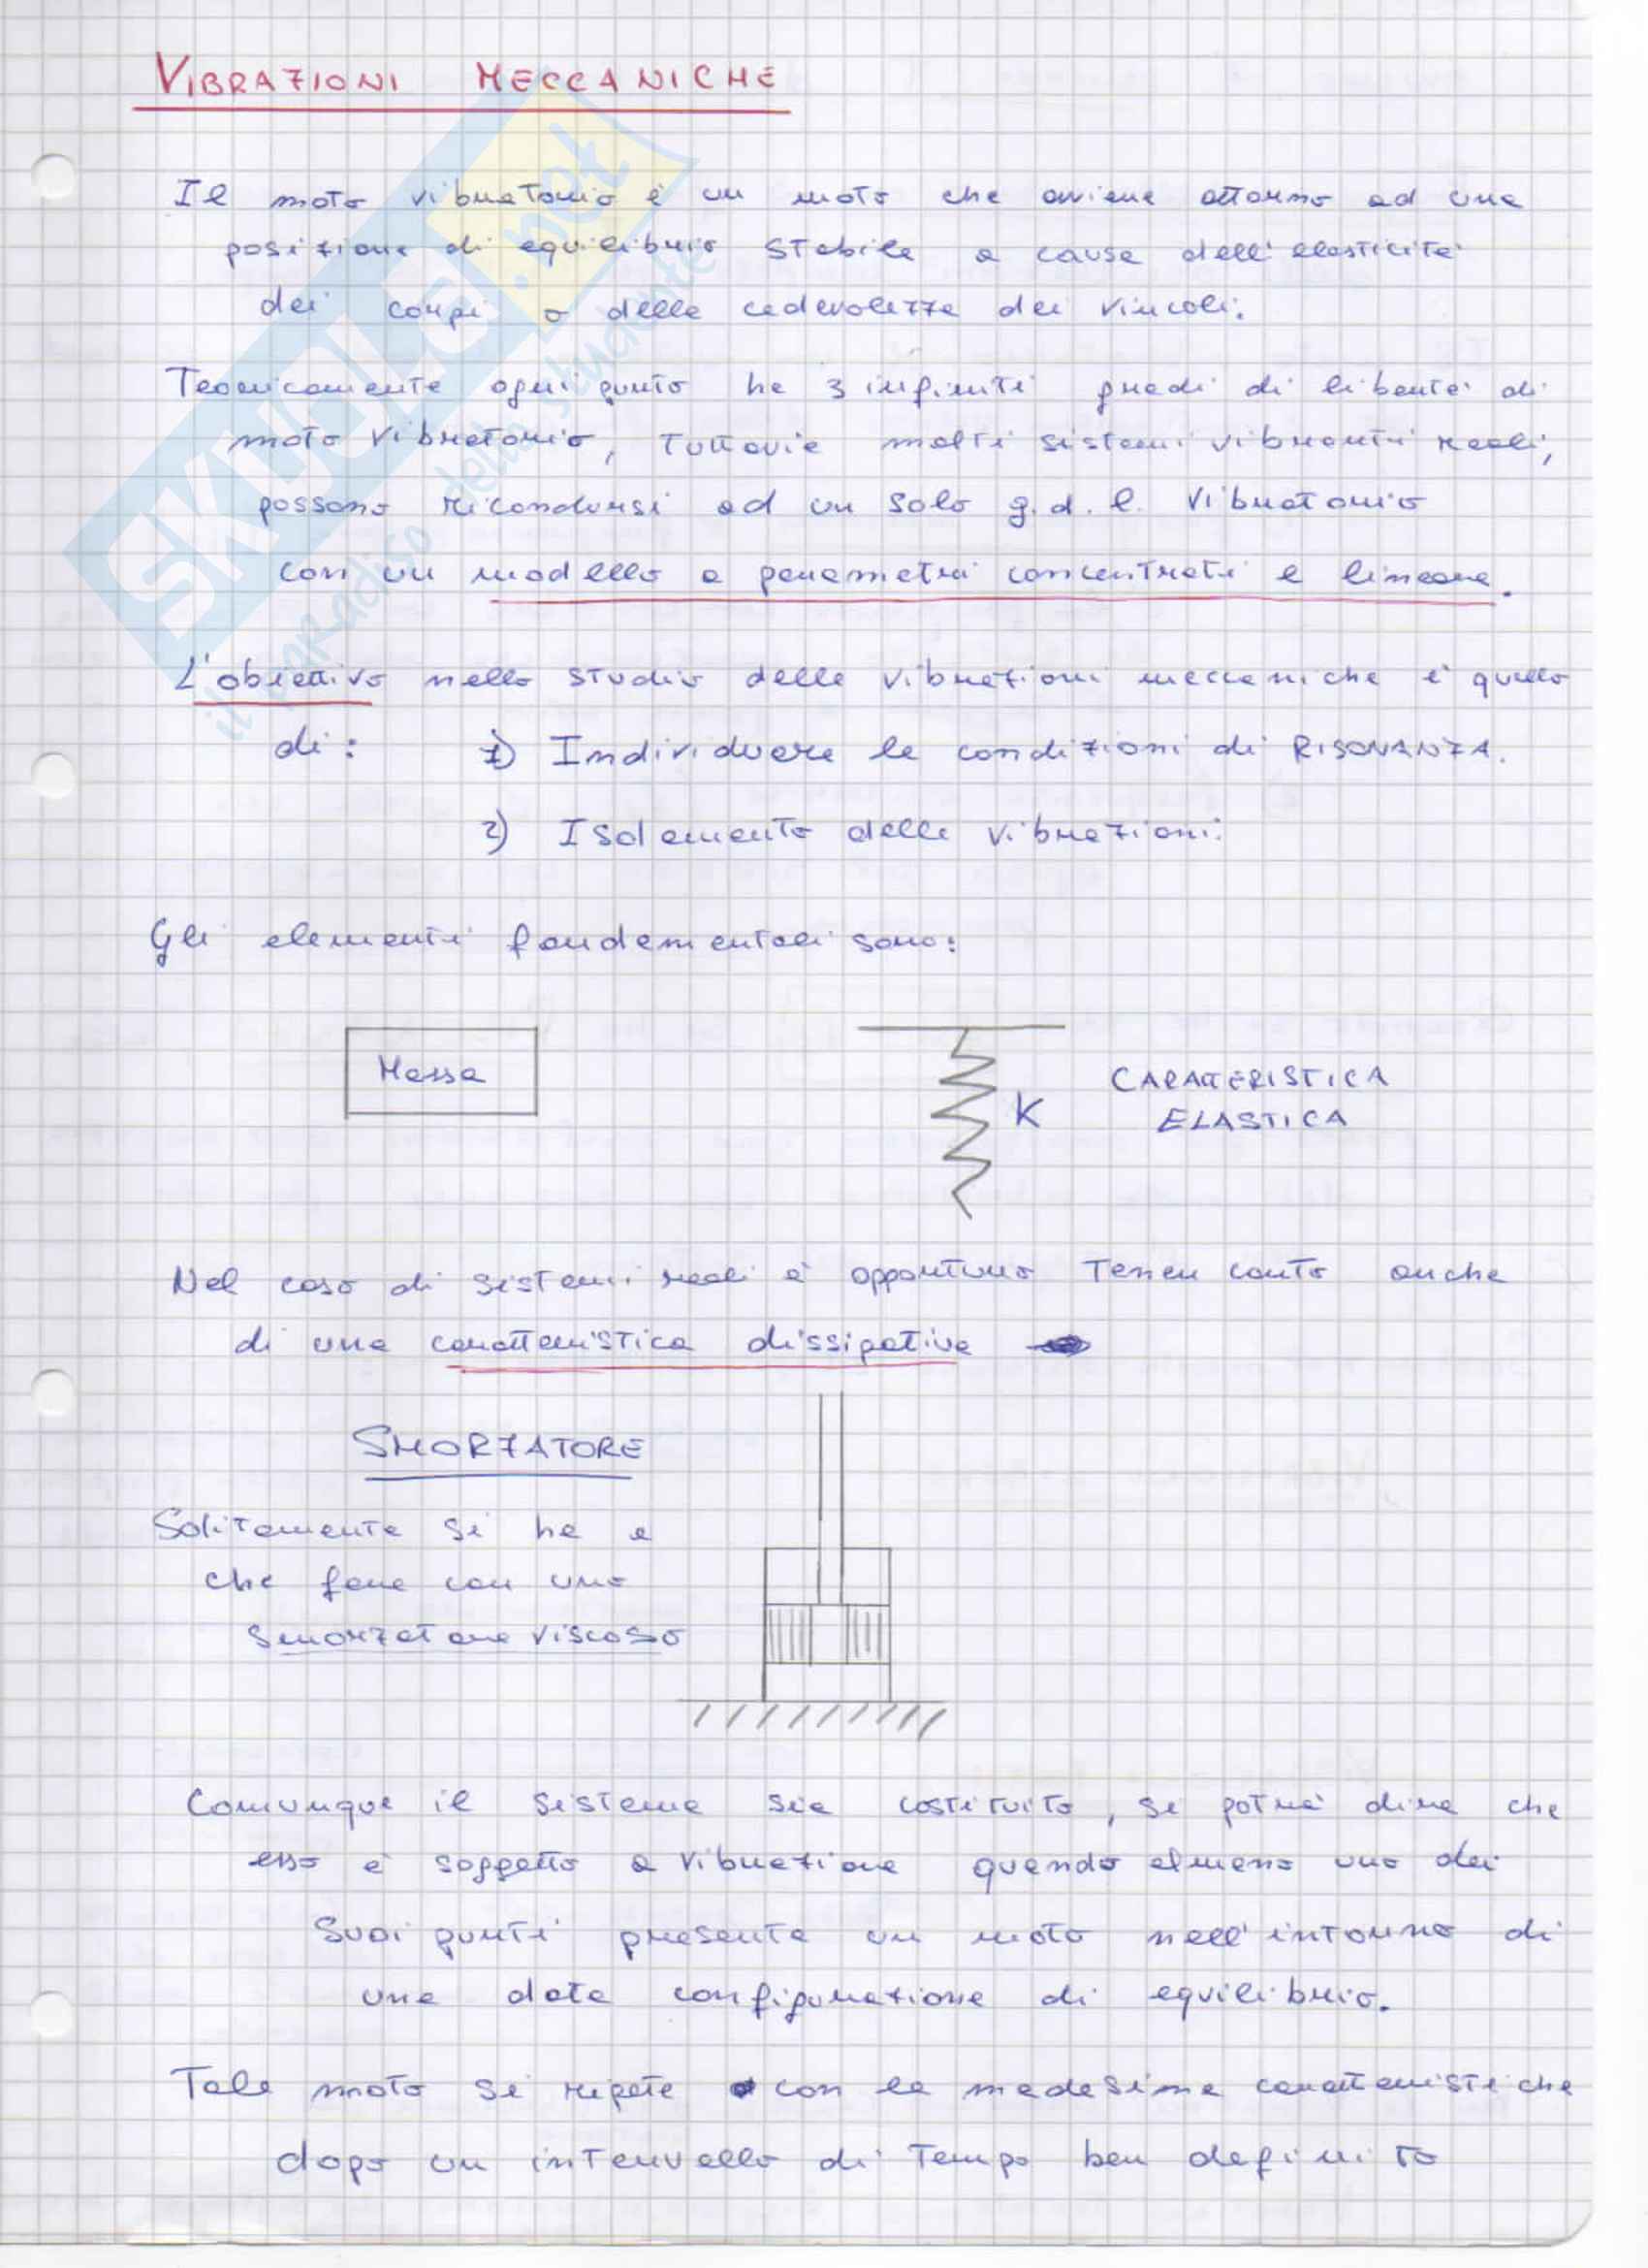 VIBRAZIONI MECCANICHE
Il moto vibratorio è un moto che avviene attorno ad una
posizione di equilibrio stabile a causa dell'elasticità
dei corpi o della cedevolezza dei vincoli.
Teoricamente ogni punto ha 3 infiniti gradi di libertà di
moto vibratorio, tuttavia molti sistemi vibranti reali,
possono ricondursi ad un solo g.d.l. vibratorio
con un modello a parametri concentrati e lineare.
L'obiettivo nello studio delle vibrazioni meccaniche è quello
di: 1) Individuare le condizioni di RISONANZA.
2) Isolamento delle vibrazioni.
Gli elementi fondamentali sono:
Massa
K
CARATTERISTICA
ELASTICA
Nel caso di sistemi reali è opportuno tener conto anche
di una caratteristica dissipativa
SMORZATORE
Solitamente si ha a
che fare con uno
smorzatore viscoso
Comunque il sistema sia costituito, si potrà dire che
esso è soggetto a vibrazione quando almeno uno dei
suoi punti presenta un moto nell'intorno di
una data configurazione di equilibrio.
Tale moto si ripete con le medesime caratteristiche
dopo un intervallo di tempo ben definito
SKUOLA.net
il paradiso dello studente